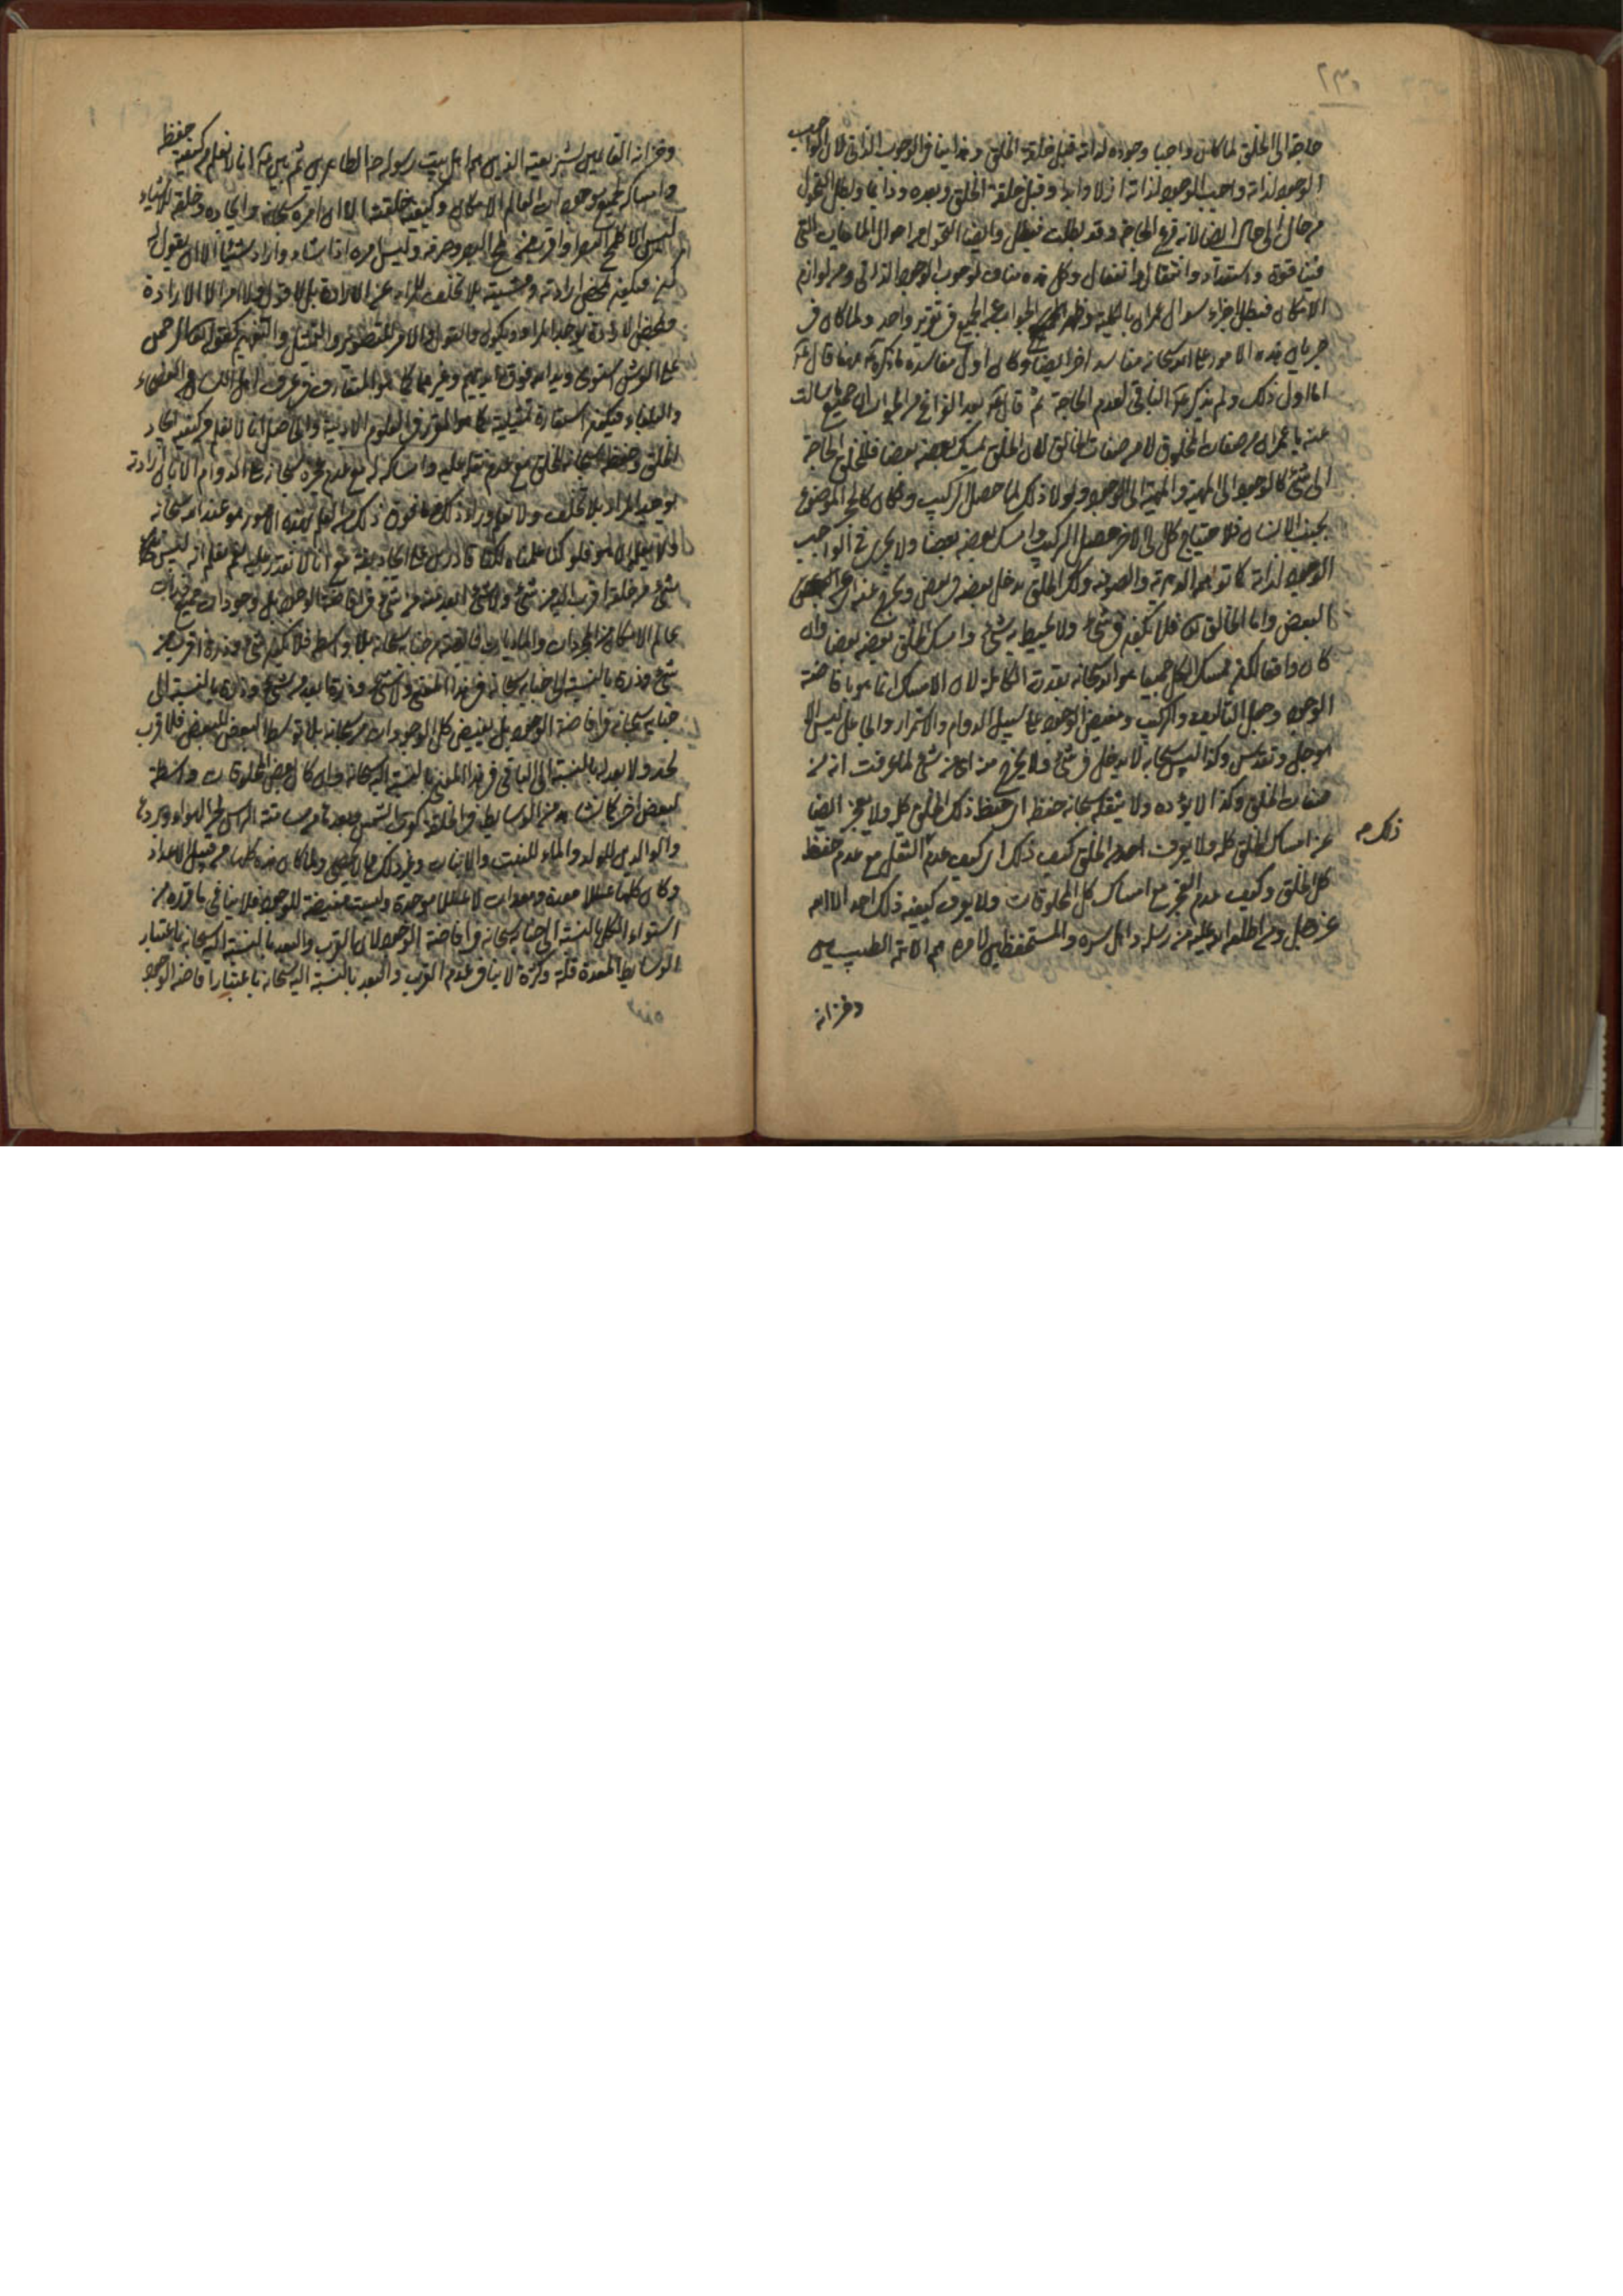 ٢٣٠
حاجة الى الخلق لما كان واجبا وجوده لذاته قبل خلقة الخلق وهذا ينافي الوجوب الذاتي لان الواجب
الوجود لذاته واجب الوجود لذاته ازلا وابدا وقبل خلقة الخلق وبعده ودائما وبطل التحول
من حال الى حال ايضا لانه فرع الحاجة وقد بطلت فيبطل وايضا التحول من احوال الماهيات التي
فيها قوة واستعداد وانتقال وانفعال وكل هذه مناف لوجوب الوجود الذاتي ومن لوازم
الامكان فبطل اجزاء سؤال عمران بالكلية وظهر الجواب عن الجميع في تقرير واحد ولما كان في
جريان هذه الامور على الله سبحانه مفاسد اخر ايضا وكان اول مفاسده ما ذكره ههنا قال
اما اول ذلك ولم يذكر الباقي لعدم الحاجة ثم قال بعد الفراغ من الجواب ان جميع ما سالت
عنه يا عمران من صفات المخلوق لا من صفات الخالق لان الخلق يمسك بعضه بعضا فللخلق الحاجة
الى شئ كالوجود الى المهية والمهية الى الوجود ولولا ذلك لما حصل التركيب وكان كالحجر الموضوع
بجنب الانسان فلا حتياج كل الى الاخر حصل التركيب وامسك بعضه بعضا ولا يجري في الواجب
الوجود لذاته كما توهمه الدهرية والصوفية وكذا الخلق يدخل بعضه في بعض ويخرج عنه اي عن
البعض واما الخالق فلا يكون في شئ ولا يحيط به شئ وامسك الخلق بعضه بعضا وان
كان واقعا لكن ممسك الكل جميعا هو الله سبحانه بقدرته الكاملة لان الامساك انما هو بافاضة
الوجود وجعل التاليف والتركيب ومفيض الوجود على سبيل الدوام والاستمرار والجاعل ليس الا
هو جل وتقدس وكذا ليس سبحانه لا يدخل في شئ ولا يخرج من اي عن شئ لما عرفت انه من
صفات الخلق وكذا لا يؤده ولا يثقله سبحانه حفظ اي حفظ ذلك الخلق كله ولا يعجز ايضا
عن امساك الخلق كله ولا يعرف احد من الخلق كيف ذلك اي كيف عدم الثقل مع عدم حفظ
ذلك م
كل الخلق وكيف عدم العجز مع امساك كل المخلوقات ولا يعرف كيفية ذلك احد الا الله
عز وجل ومن اطلعه الله عليه من رسله واهل سره والمستحفظين لامره هم الائمة الطيبين
وخزانه
وخزانه القائمين بشريعته الذين هم اهل بيت رسوله الطاهرين ثم بين انا لا نعلم من كيفية حفظه
وامساكه لجميع موجودات العالم الامكان وكيفية خلقته الا ان امره سبحانه وايجاده وخلقه للاشياء
ليس الا كلمح البصر او اقرب من لمح البصر وحرفه وليس امره اذا شاء واراد شيئا الا ان يقول له
كن فيكون بمحض ارادته ومشيته بلا تخلف المراد عن الارادة بل لا قول ولا امر الا الارادة
فبمحض الارادة يوجد المراد ويكون والقول والامر للتصوير والتمثيل والتفهيم كقوله تعالى الرحمن
على العرش استوى ويد الله فوق ايديهم وغيرهما كما هو المتعارف في عرف اهل اللسان والفصحاء
والبلغاء فيكون استعارة تمثيلية كما هو المقرر في العلوم الادبية والحاصل انا لا نعلم من كيفية ايجاد
الخلق وحفظه سبحانه للخلق مع عدم ثقله عليه وامساكه له مع عدم عجزه سبحانه على الدوام الا بان بارادته
يوجد المراد بلا تخلف ولا نعلم وراء ذلك فما فوق ذلك من العلم بهذه الامور هو عند الله سبحانه
ولا يعلم الا هو فلو كنا علمناه لكنا قادرين على ايجاد بعضه مع انا لا نقدر عليه نعم نعلم انه ليس
شئ من خلقه اقرب اليه من شئ ولا شئ ابعد منه من شئ في افاضة الوجود بل وجودات جميع ذرات
عالم الامكان من المجردات والماديات فائضة من جنابه سبحانه بلا واسطة فلا يكون شئ وذرة اقرب من
شئ وذرة بالنسبة الى جنابه سبحانه في هذا المعنى ولا شئ وذرة ابعد من شئ وذرة بالنسبة الى
جنابه سبحانه في افاضة الوجود بل يفيض كل الوجودات من سبحانه بلا توسط البعض للبعض فلا قرب
لاحد ولا بعد له بالنسبة الى الباقي في هذا المعنى بالنسبة اليه سبحانه وان كان بعض المخلوقات واسطة
لبعض اخر كما نشاهد من الوسايط في الخلق كقرب الشمس وبعدها من مسامتة الراس لحر الهواء وبردها
والوالدين للولد والماء للنبت والانبات وغير ذلك مما لا يحصى ولما كان هذه كلها من قبيل الاعداد
وكان كلها عللا معدة ومعدات لا عللا موجدة وليست مفيضة للوجود فلا ينافي ما قرره من
استواء الكل بالنسبة الى جنابه سبحانه في افاضة الوجود لان القرب والبعد بالنسبة اليه سبحانه باعتبار
الوسايط المعدة قلة وكثرة لا ينافي عدم القرب والبعد بالنسبة اليه سبحانه باعتبار افاضة الوجود